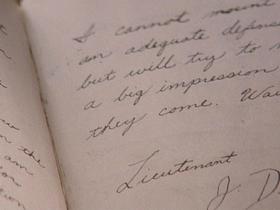 I cannot mount
an adequate defens
but will try to
a big impression
they come. Wai
Lieutenant
J. D
the
am